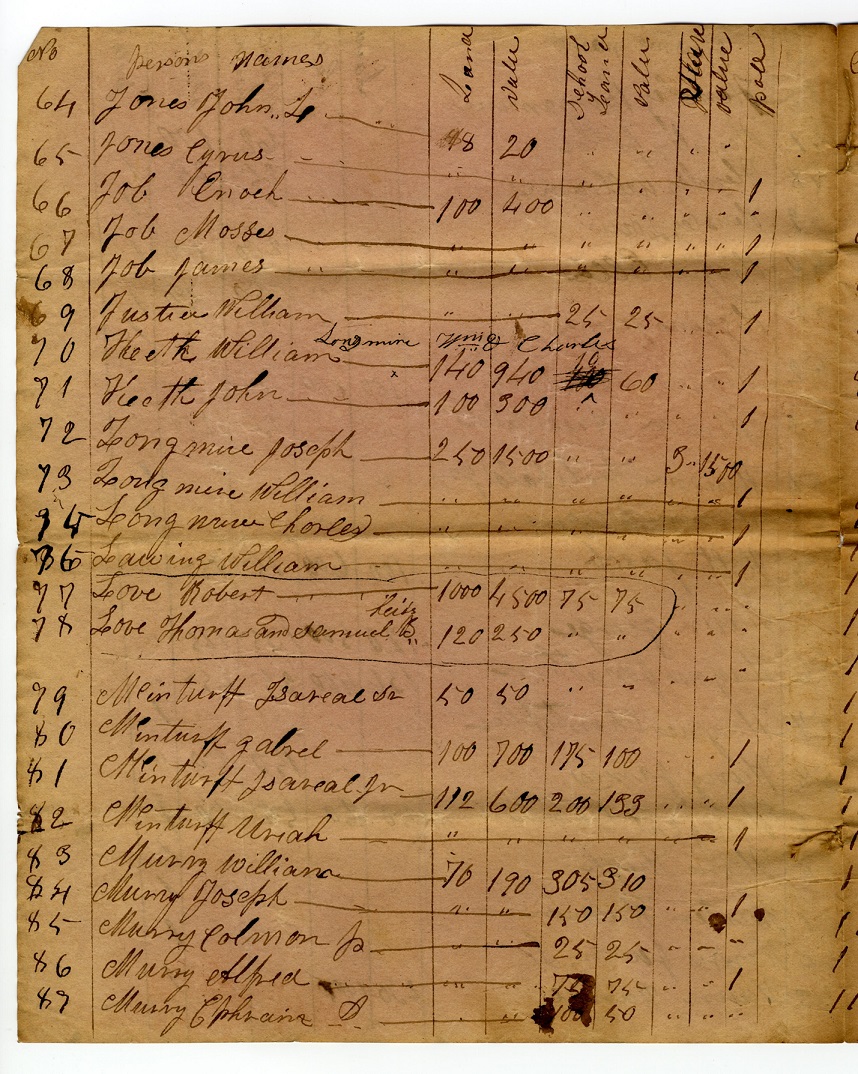 No persons names Land Value School Land Value Slave value pole
64 Jones John L 48 20 " " " "
65 Jones Cyrus " " " " " " 1
66 Job Enoch 100 400 " " " " "
67 Job Mosses " " " " " " 1
68 Job James " " " " " " 1
69 Justice William " " 25 25 1
Longmire Wm & Charles
70 Heeth William 140 940 60 " " 1
71 Heeth John 100 300 " " 1
72 Longmire Joseph 250 1500 " " 3 1500
73 Longmire William " " " " " " 1
74 Longmire Charles " " " " " 1
76 Lawing William " " " " 1
77 Love Robert 1000 4500 75 75 " " "
78 Love Thomas and Samuel 120 250 " " " " "
79 Minturff Isareal Sr 50 50 " " " " "
80 Minturff gabrel 100 700 175 100 1
81 Minturff Isareal Jr 112 600 200 133 " " 1
82 Minturff Uriah " " " " " " 1
83 Murry William 76 190 305 310
84 Murry Joseph " " 150 150 " " 1
85 Murry Colmon Jr " " 25 25 " " "
86 Murry Alfred " " 75 75 " " 1
87 Murry Ephraim 100 50 " " "